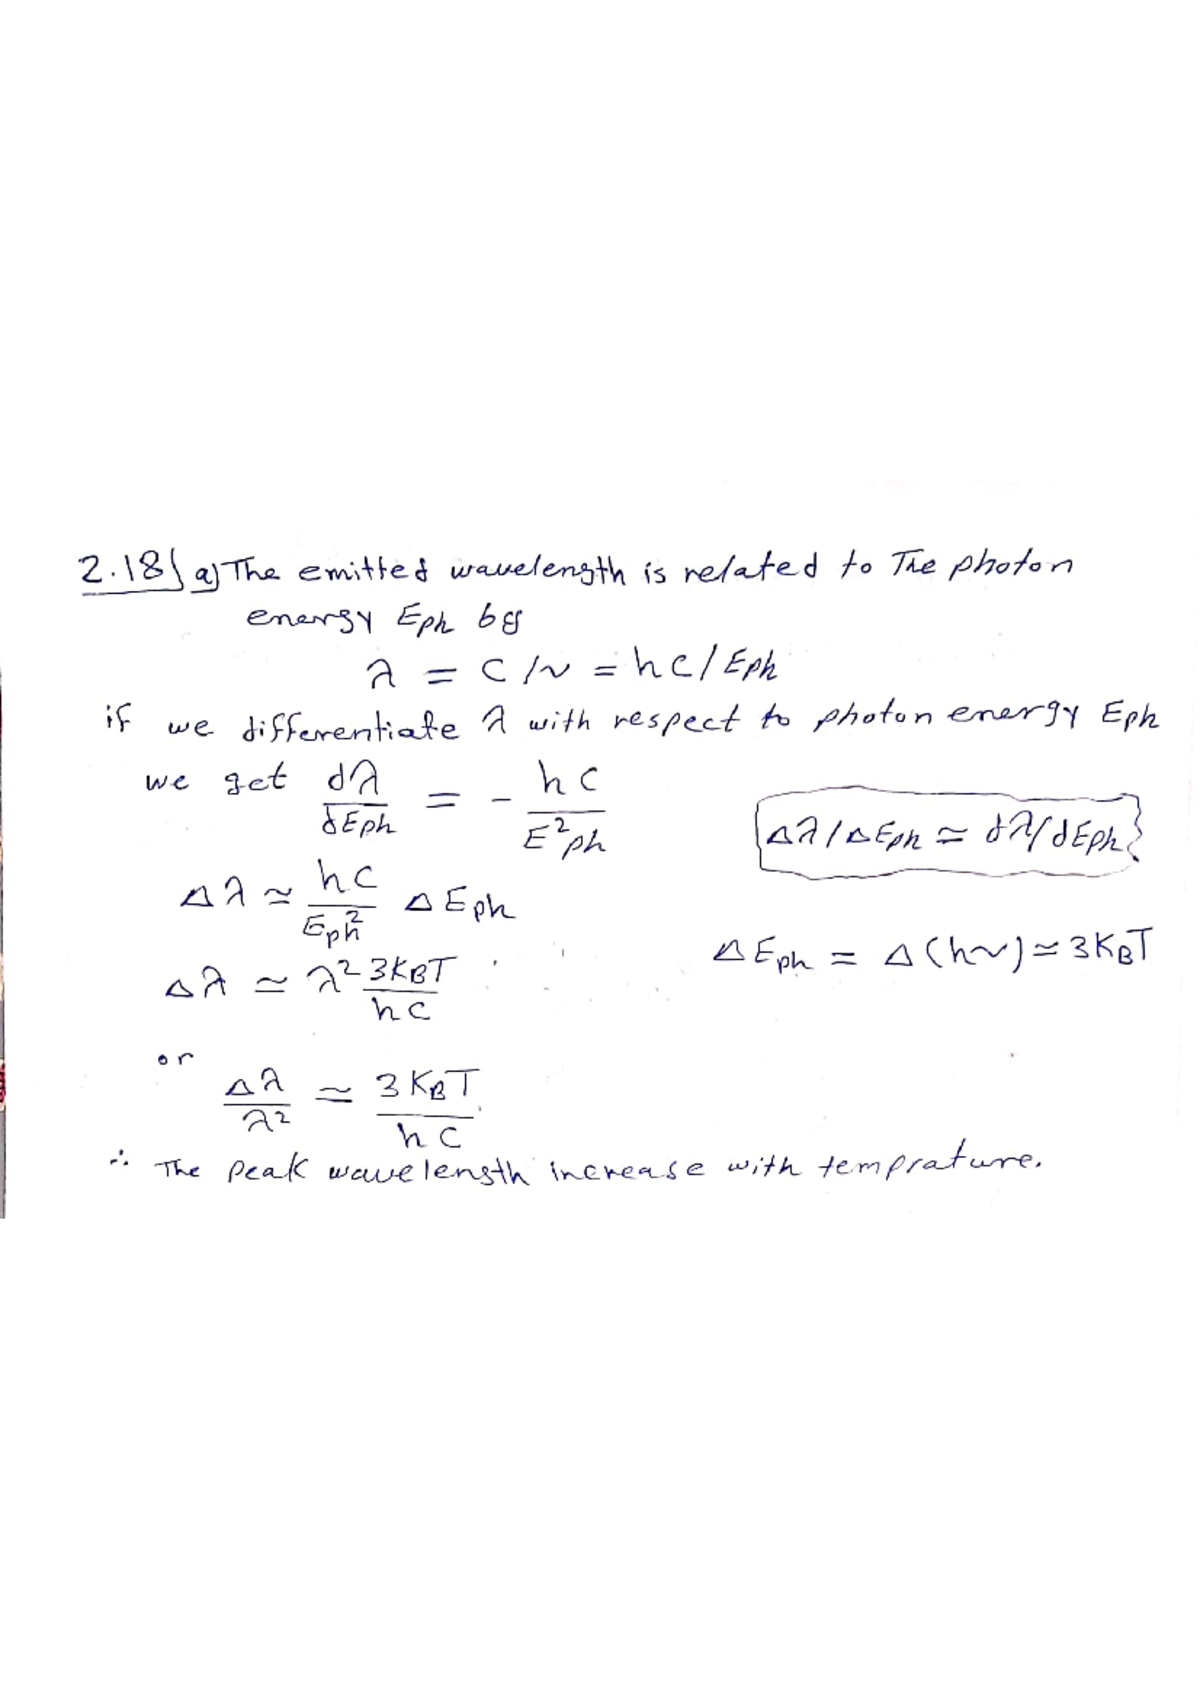 2.18) a) The emitted wavelength is related to The photon
energy Eph by
λ = c/ν = hc/Eph
if we differentiate λ with respect to photon energy Eph
we get dλ/dEph = - hc/E²ph
Δλ/ΔEph ≃ dλ/dEph
Δλ ≃ hc/Eph² ΔEph
ΔEph = Δ(hν) ≃ 3KBT
Δλ ≃ λ² 3KBT/hc
or
Δλ/λ² ≃ 3KBT/hc
∴ The peak wavelength increase with temprature.